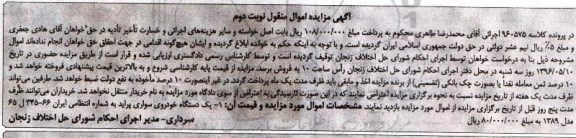 آگهی مزایده اموال منقول نوبت دوم
در پرونده کلاسه ۹۶۰۵۷۵ اجرائی آقای محمدرضا طاهری محکوم به پرداخت مبلغ ۱۰۸/۰۰۰/۰۰۰ ریال بابت اصل خواسته و سایر هزینه‌های اجرائی و خسارت تأخیر تأدیه در حق خواهان آقای هادی جعفری
و مبلغ ۵٪ ریال نیم عشر دولتی در حق دولت جمهوری اسلامی ایران گردیده است. و با توجه به اینکه حکم به خوانده ابلاغ گردیده و ایشان هیچگونه اقدامی در جهت احقاق حق خواهان انجام نداده‌اند اموال
مشروحه ذیل بنا به درخواست خواهان توسط اجرای احکام شورای حل اختلاف زنجان توقیف گردیده است و توسط کارشناس رسمی دادگستری ارزیابی شده و قرار است از طریق مزایده حضوری در تاریخ
۱۳۹۶/۰۵/۱۰ روز سه شنبه در محل دفتر اجرای احکام شورای حل اختلاف زنجان راس ساعت ۱۰ به فروش برسد مزایده از قیمت پایه کارشناسی شروع و به بالاترین قیمت پیشنهادی فروخته خواهد شد و
۱۰ درصد ثمن معامله نقداً یا بصورت چک بانکی (تضمینی) از برنده مزایده اخذ و مابقی باید ظرف مدت یک ماه پرداخت گردد. در غیر اینصورت ۱۰ درصد مأخوذه به نفع دولت ضبط خواهد شد. طرفین می‌توانند
ظرف مدت یک هفته از تاریخ مزایده نسبت به نحوه برگزاری مزایده اعتراض نمایند که در این صورت تا رسیدگی به اعتراض از سوی دادگاه مورد مزایده به نام خریدار منتقل نخواهد شد. خریداران می‌توانند ظرف
مدت پنج روز قبل از تاریخ برگزاری مزایده از اموال مورد مزایده بازدید نمایند. مشخصات اموال مورد مزایده و قیمت آن: ۱- یک دستگاه خودروی سواری پراید به شماره انتظامی ایران
مدل ۱۳۸۹ به مبلغ ۸۰/۰۰۰/۰۰۰ ریال
سرداری- مدیر اجرای احکام شورای حل اختلاف زنجان